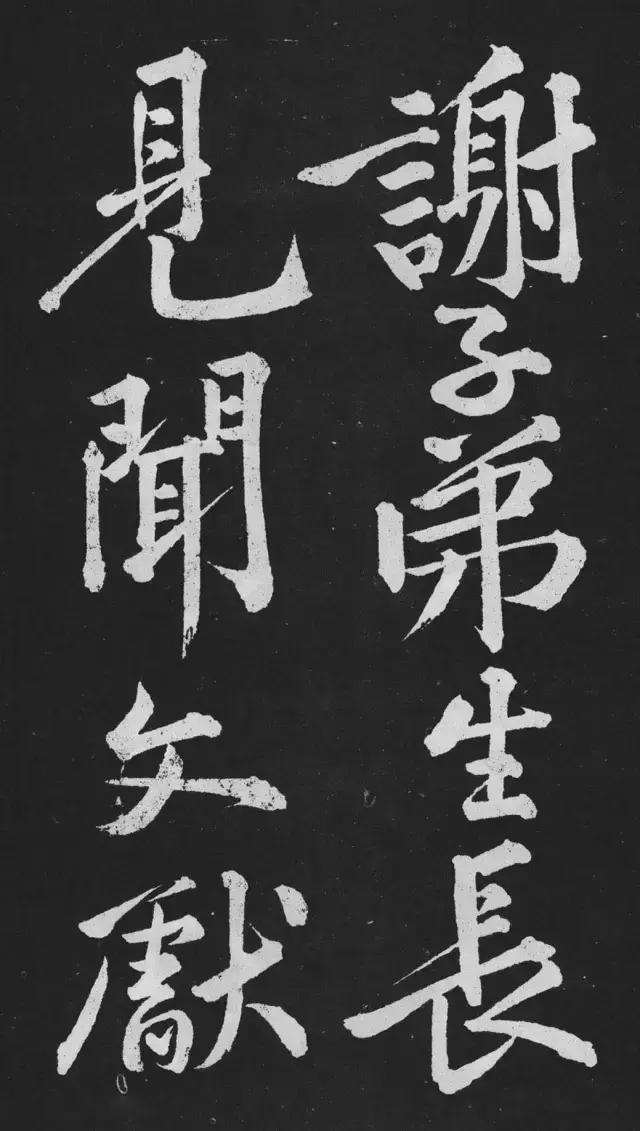 謝子弟生長
見聞文獻